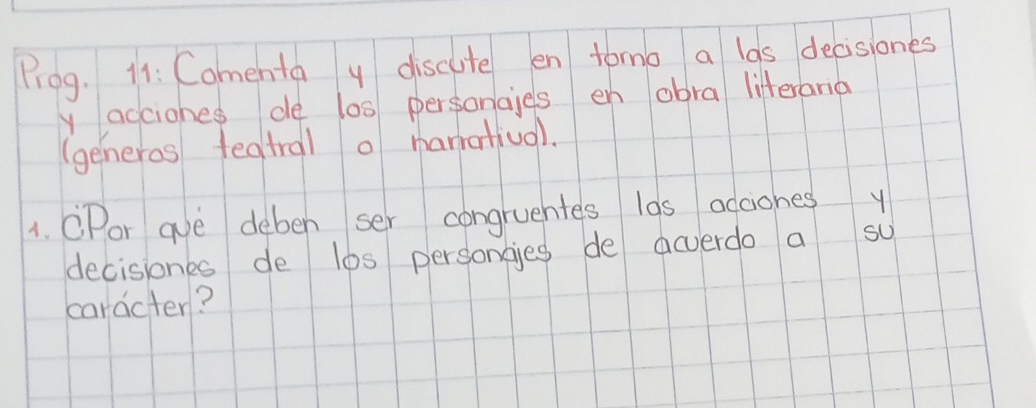 Prog. 11: Comenta y discute en torno a las decisiones
y acciones de los personajes en obra literaria
(géneros teatral o narrativo).
1. ¿Por qué deben ser congruentes las acciones y
decisiones de los personajes de acuerdo a su
carácter?